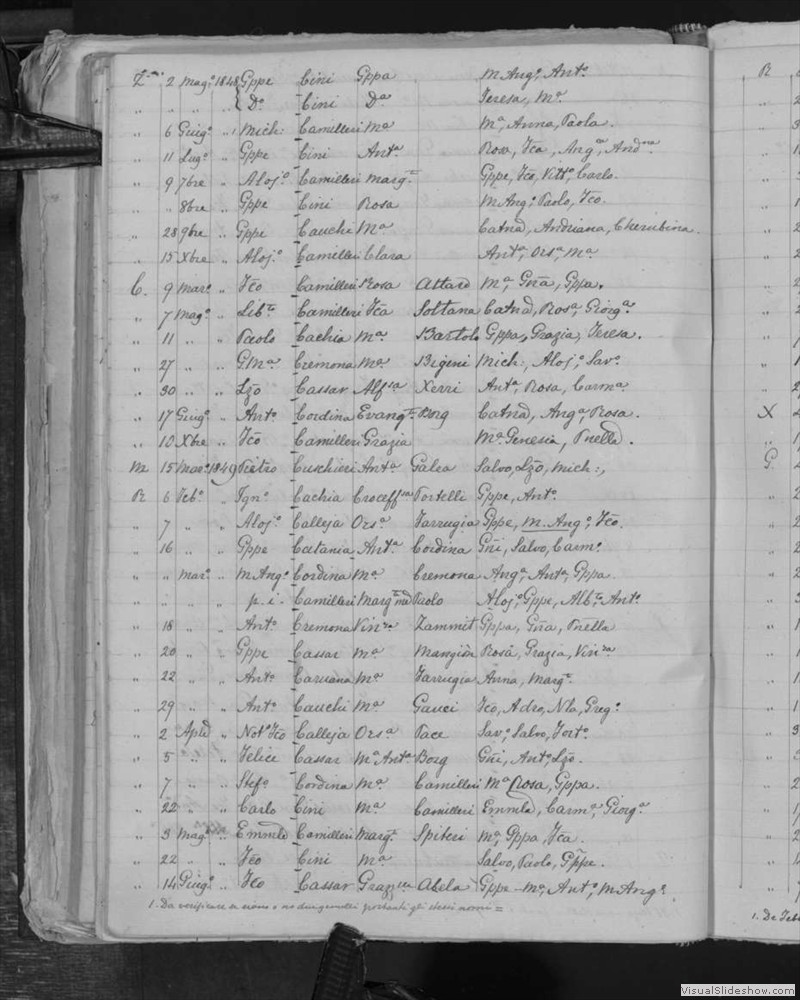 Z. " 2 Mag.o 1848 Gppe Cini Gppa M Ang.o, Ant.o
" " " " D.o Cini D.a Teresa, M.a
" 6 Giug.o " Mich: Camilleri M.a M.a, Anna, Paola.
" 11 Lug.o " Gppe Cini Ant.a Rosa, Fca, Ang.a, And.na
" 9 7bre " Aloj.o Camilleri Marg.ta Gppe, Fco, Vitt.o, Carlo.
" " 8bre " Gppe Cini Rosa M Ang.o, Paolo, Fco.
" 28 9bre " Gppe Cauchi M.a Catnã, Andriana, Cherubina.
" 15 Xbre " Aloj.o Camilleri Clara Ant.a, Ors.a, M.a
C. 9 Mar.o " Fco Camilleri Rosa Attard M.a, Gña, Gppa.
" 7 Mag.o " Lib.to Camilleri Fca Soltana Catnã, Ros.a, Giorg.a
" 11 " " Paolo Cachia M.a Bartolo Gppa, Grazia, Teresa.
" 27 " " G.M.a Cremona M.a Bigeni Mich:, Aloj.o, Sav.o
" 30 " " Lzo Cassar Alf.sa Xerri Ant.a, Rosa, Carm.a
" 17 Giug.o " Ant.o Cordina Evang.ta Borg Catnã, Ang.a, Rosa.
" 10 Xbre " Fco Camilleri Grazia M.a Genesia, Pnella.
M 15 Mar.o 1849 Pietro Cuschieri Ant.a Galea Salvo, Lzo, Mich:,
R 6 Feb.o " Ign.o Cachia Croceff.sa Portelli Gppe, Ant.o
" 7 " " Aloj.o Calleja Ors.a Farrugia Gppe, M. Ang.o, Fco.
" 16 " " Gppe Catania Ant.a Cordina Gñi, Salvo, Carm.o
" " Mar.o " M Ang.o Cordina M.a Cremona Ang.a, Ant.a, Gppa
" " " " p.i. Camilleri Marg. Paolo Aloj.o, Gppe, Alb.to, Ant.o
" 18 " " Ant.o Cremona Vin.za Zammit Gppa, Gña, Pnella
" 20 " " Gppe Cassar M.a Mangion Rosa, Grazia, Vin.za
" 22 " " Ant.o Caruana M.a Farrugia Anna, Marg.ta
" 29 " " Ant.o Cauchi M.a Gauci Fco, Adeo, Nla, Greg.o
" 2 Aprle " Not.o Fco Calleja Ors.a Pace Sav.o, Salvo, Fort.o
" 5 " " Felice Cassar M.a Ant.a Borg Gñi, Ant.o, Lzo.
" 7 " " Stef.o Cordina M.a Camilleri M.a Rosa, Gppa.
" 22 " " Carlo Cini M.a Camilleri Emmla, Carm.a, Giorg.a
" 3 Mag.o " Emmle Camilleri Marg.ta Spiteri M.a, Gppa, Fca.
" 22 " " Fco Cini M.a Salvo, Paolo, Gppe.
" 14 Giug.o " Fco Cassar Graz. Abela Gppe M.a, Ant.o, M Ang.o
1. Da verificare se erano o no due gemelli portanti gli stessi nomi =
R
X
G.
1. De Feb
VisualSlideshow.com